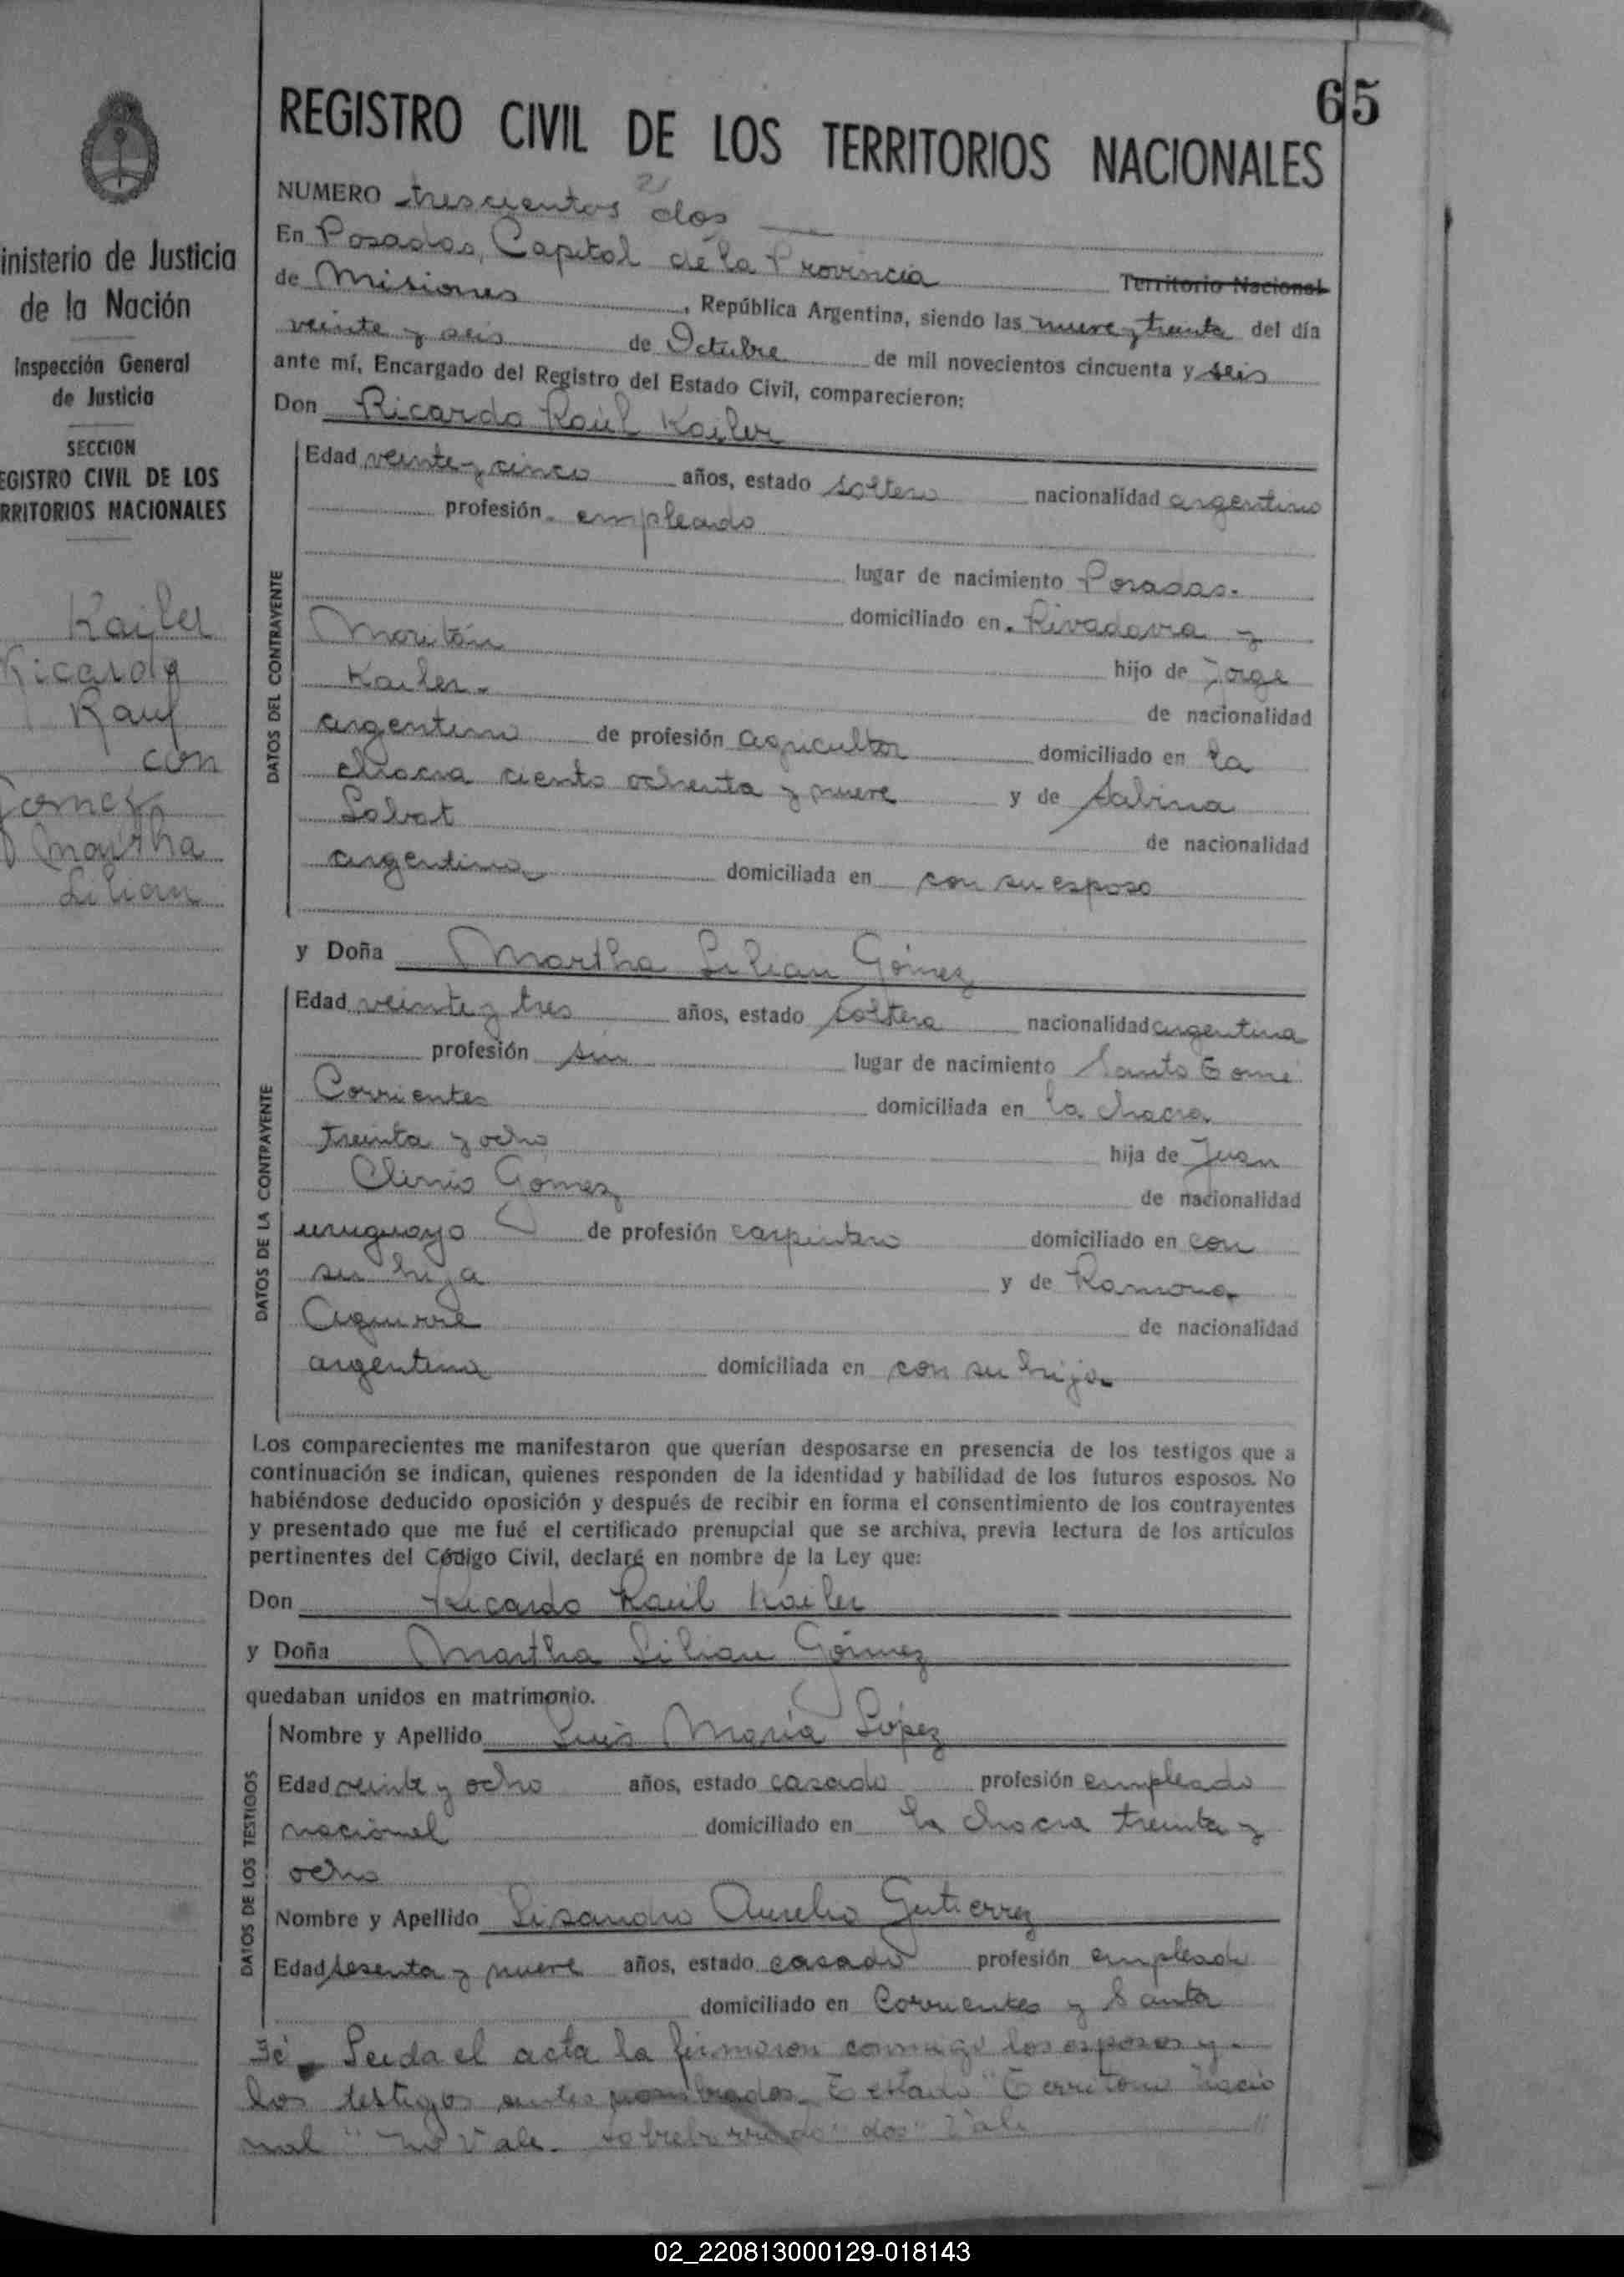 65
REGISTRO CIVIL DE LOS TERRITORIOS NACIONALES
NUMERO trescientos dos
En Posadas, Capital de la Provincia Territorio Nacional
de Misiones, República Argentina, siendo las nueve y treinta del día
veinte y seis de Octubre de mil novecientos cincuenta y seis
ante mí, Encargado del Registro del Estado Civil, comparecieron:
Don Ricardo Raúl Kailer
Edad veinte y cinco años, estado soltero nacionalidad argentino
profesión empleado
lugar de nacimiento Posadas.
domiciliado en Rivadavia y
Moritán hijo de Jorge
Kailer. de nacionalidad
argentino de profesión agricultor domiciliado en la
chacra ciento ochenta y nueve y de Sabina
Lobat de nacionalidad
argentina domiciliada en con su esposo
DATOS DEL CONTRAYENTE
y Doña Martha Lilian Gómez
Edad veinte y tres años, estado soltera nacionalidad argentina
profesión sin lugar de nacimiento Santo Tomé
Corrientes domiciliada en la chacra
treinta y ocho hija de Juan
Clinio Gómez de nacionalidad
uruguayo de profesión carpintero domiciliado en con
su hija y de Ramona
Aguirre de nacionalidad
argentina domiciliada en con su hija
DATOS DE LA CONTRAYENTE
Los comparecientes me manifestaron que querían desposarse en presencia de los testigos que a
continuación se indican, quienes responden de la identidad y habilidad de los futuros esposos. No
habiéndose deducido oposición y después de recibir en forma el consentimiento de los contrayentes
y presentado que me fué el certificado prenupcial que se archiva, previa lectura de los artículos
pertinentes del Código Civil, declaré en nombre de la Ley que:
Don Ricardo Raúl Kailer
y Doña Martha Lilian Gómez
quedaban unidos en matrimonio.
Nombre y Apellido Luis María López
Edad veinte y ocho años, estado casado profesión empleado
nacional domiciliado en la chacra treinta y
ocho
Nombre y Apellido Lisandro Aurelio Gutierrez
Edad sesenta y nueve años, estado casado profesión empleado
domiciliado en Corrientes y Santa
DATOS DE LOS TESTIGOS
Fé. Leida el acta la firmaron conmigo los esposos y
los testigos antes nombrados. Testado "Territorio Nacio
nal" No Vale. sobreborrado "dos" Vale
inisterio de Justicia
de la Nación
Inspección General
de Justicia
SECCION
EGISTRO CIVIL DE LOS
RRITORIOS NACIONALES
Kailer
Ricardo
Raul
con
Gomez
Martha
Lilian
02_220813000129-018143